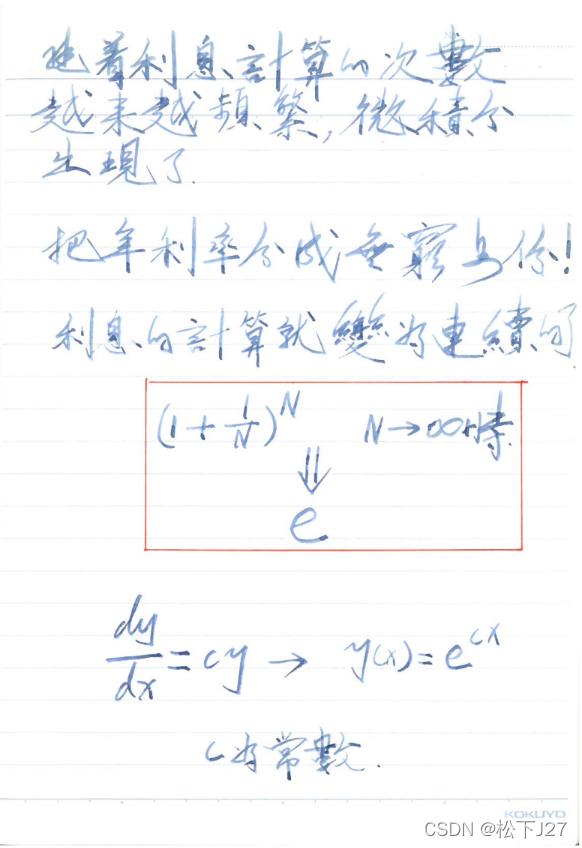 随着利息計算的次數
越来越頻繁,微積分
出現了.
把年利率分成無窮多份!
利息的計算就變为連續的
(1+1/N)^N N→∞時.
⇓
e
dy/dx=cy → y(x)=e^{cx}
c为常數.
KOKUYO
CSDN @松下J27